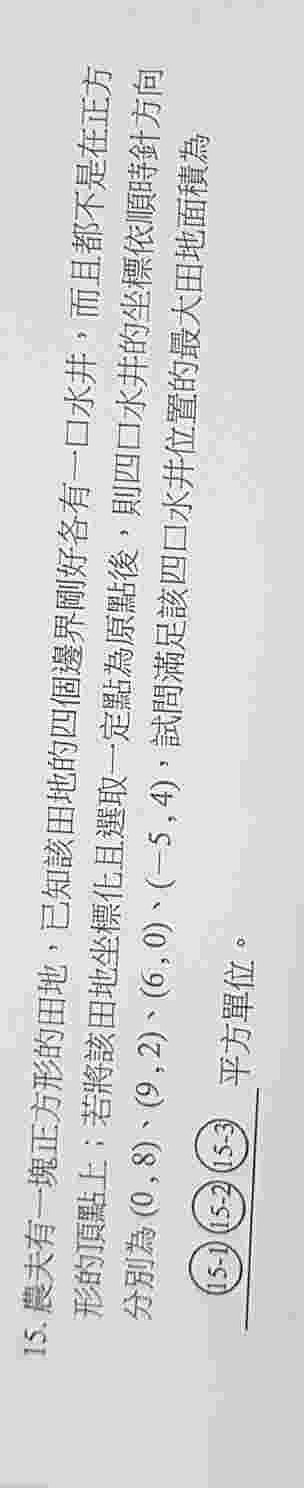 15. 農夫有一塊正方形的田地，已知該田地的四個邊界剛好各有一口水井，而且都不是在正方
形的頂點上；若將該田地坐標化且選取一定點為原點後，則四口水井的坐標依順時針方向
分別為(0 , 8)、(9 , 2)、(6 , 0)、(−5 , 4)，試問滿足該四口水井位置的最大田地面積為
15-1 15-2 15-3 平方單位。